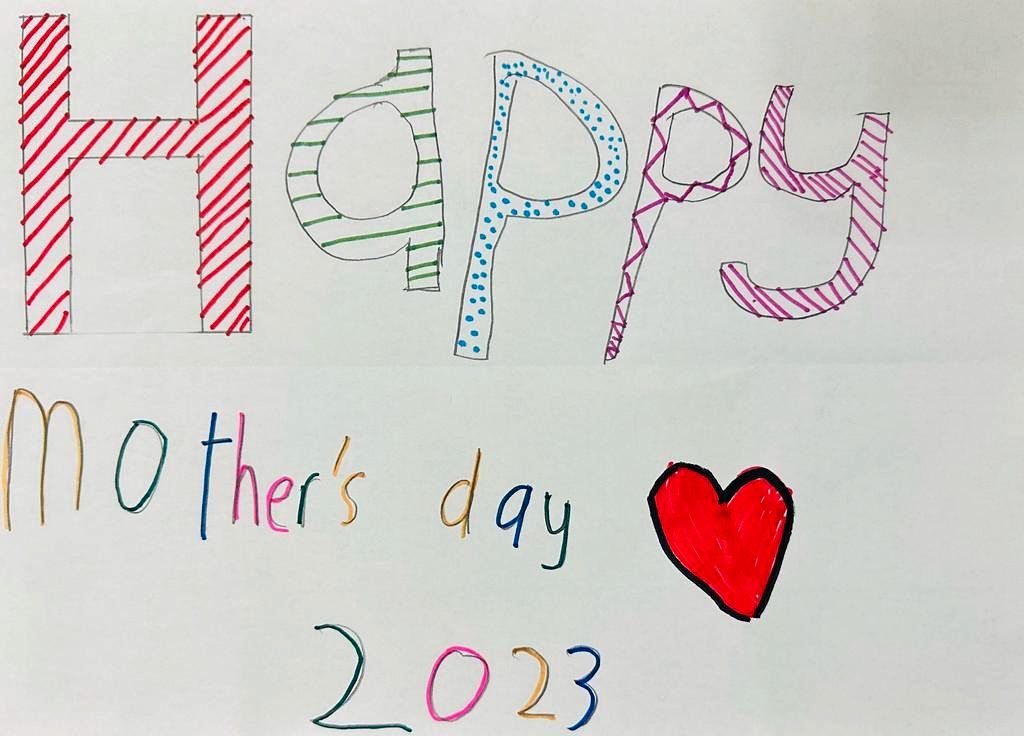 Happy
Mother's day
2023